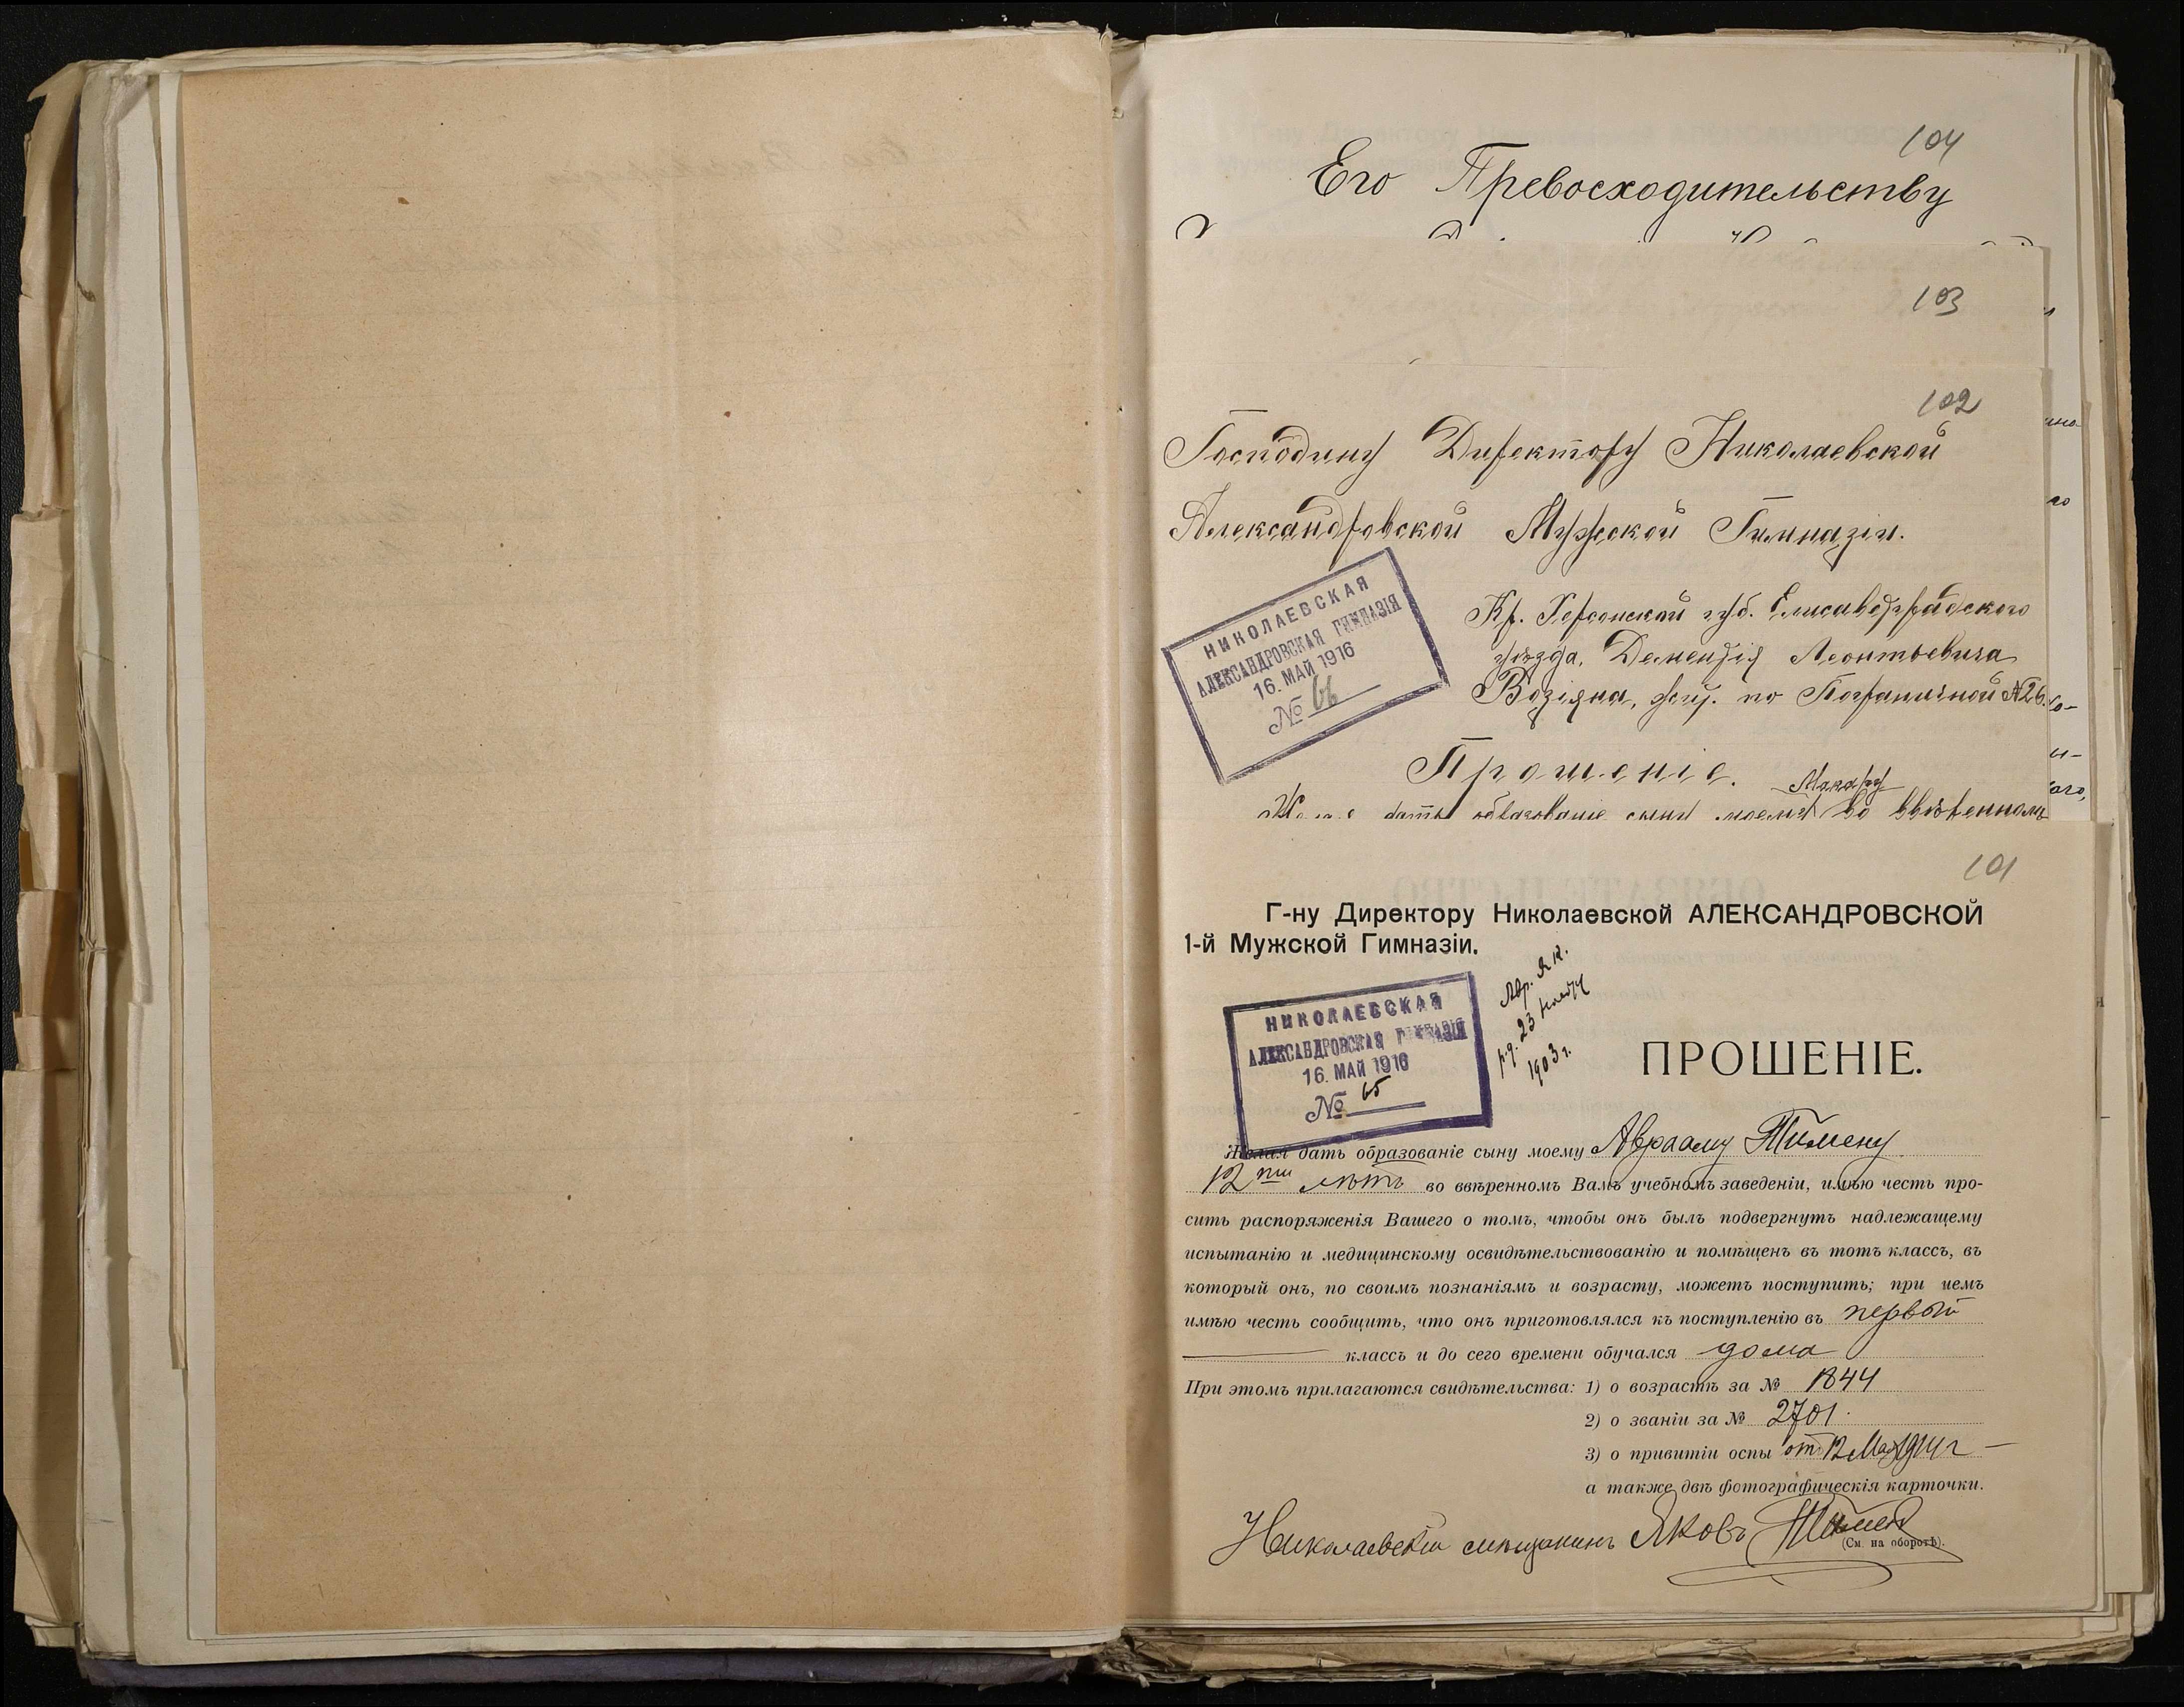 104
Его Превосходительству
103
102
Господину Директору Николаевской
Александровской Мужской Гимназіи.
НИКОЛАЕВСКАЯ
АЛЕКСАНДРОВСКАЯ ГИМНАЗІЯ
16. МАЙ 1916
№ 66
Кр. Херсонской губ. Елисаветградского
уѣзда, Дементія Леонтьевича
Возіяна, жит. по Пограничной №26.
Прошеніе.
Макару
Желая дать образованіе сыну моему во ввѣренномъ
101
Г-ну Директору Николаевской АЛЕКСАНДРОВСКОЙ
1-й Мужской Гимназіи.
НИКОЛАЕВСКАЯ
АЛЕКСАНДРОВСКАЯ ГИМНАЗІЯ
16. МАЙ 1916
№ 65
р.д. 23
1903 г.
ПРОШЕНІЕ.
Желая дать образованіе сыну моему Аврааму
12ти лѣтъ во ввѣренномъ Вамъ учебномъ заведеніи, имѣю честь про-
сить распоряженія Вашего о томъ, чтобы онъ былъ подвергнутъ надлежащему
испытанію и медицинскому освидѣтельствованію и помѣщенъ въ тотъ классъ, въ
который онъ, по своимъ познаніямъ и возрасту, можетъ поступить; при чемъ
имѣю честь сообщить, что онъ приготовлялся къ поступленію въ первый
классъ и до сего времени обучался дома
При этомъ прилагаются свидѣтельства: 1) о возрастѣ за № 1844
2) о званіи за № 2701.
3) о привитіи оспы от 12 Мая 1914 г —
а также двѣ фотографическія карточки.
Николаевскій мѣщанинъ Яковъ
(См. на оборотѣ).